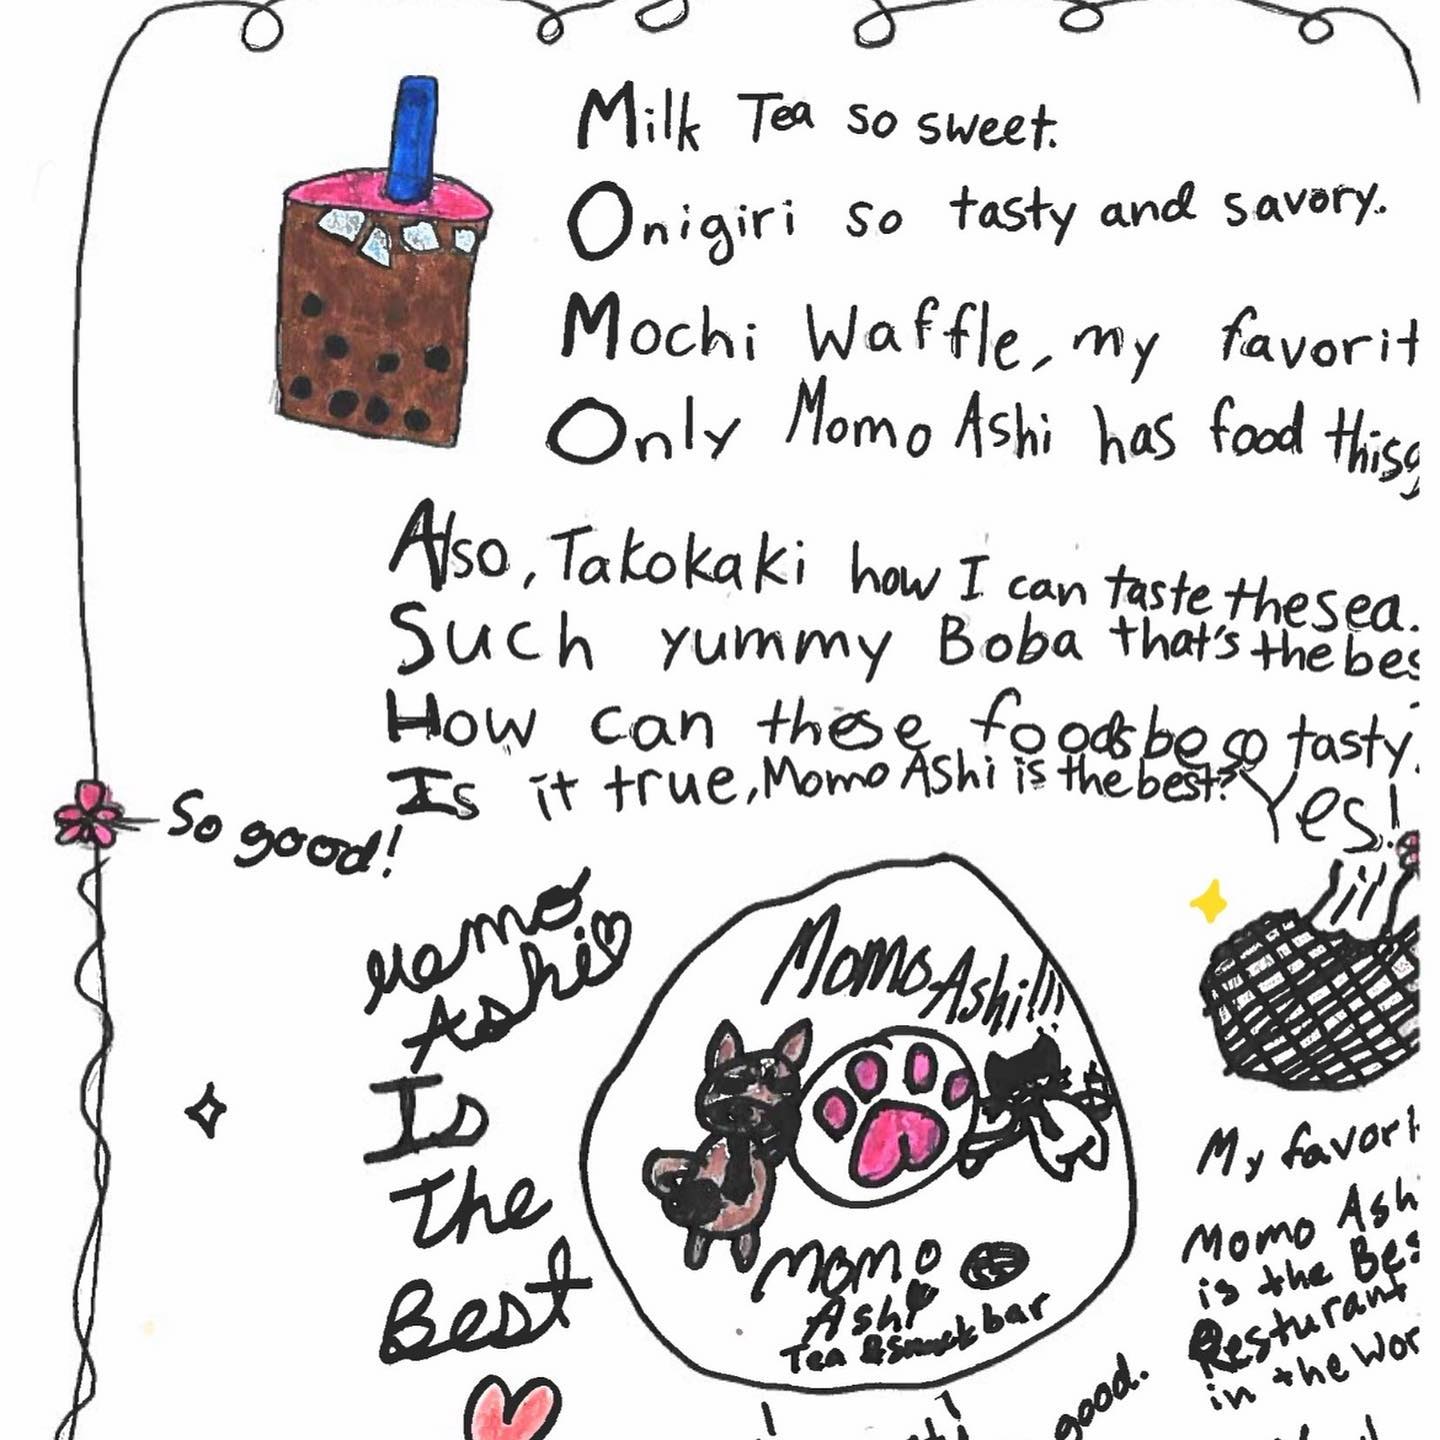 Milk Tea so sweet.
Onigiri so tasty and savory.
Mochi Waffle, my favorit
Only Momo Ashi has food this
Also, Takokaki how I can taste the sea.
Such yummy Boba that's the bes
How can these foods be so tasty
Is it true, Momo Ashi is the best? Yes!
So good!
Momo
Ashi
Is
The
Best
Momo Ashi!!!
Momo
Ashi
Tea & Snack bar
My favori
Momo Ash
is the Bes
Resturant
in the Wor
good.